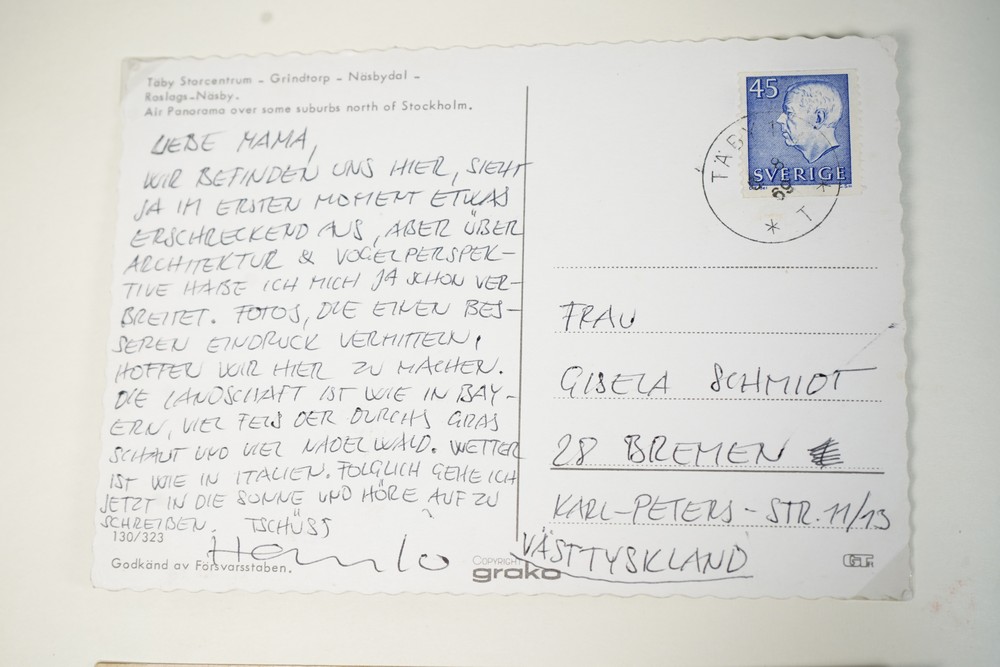 Täby Storcentrum - Grindtorp - Näsbydal -
Roslags-Näsby.
Air Panorama over some suburbs north of Stockholm.
LIEBE MAMA,
WIR BEFINDEN UNS HIER, SIEHT
JA IM ERSTEN MOMENT ETWAS
ERSCHRECKEND AUS, ABER ÜBER
ARCHITEKTUR & VOGELPERSPEK-
TIVE HABE ICH MICH JA SCHON VER-
BREITET. FOTOS, DIE EINEN BES-
SEREN EINDRUCK VERMITTELN,
HOFFEN WIR HIER ZU MACHEN.
DIE LANDSCHAFT IST WIE IN BAY-
ERN, VIEL FELS DER DURCHS GRAS
SCHAUT UND VIEL NADELWALD. WETTER
IST WIE IN ITALIEN. FOLGLICH GEHE ICH
JETZT IN DIE SONNE UND HÖRE AUF ZU
SCHREIBEN. TSCHÜSS
130/323
Godkänd av Försvarsstaben.
COPYRIGHT
grako
45
SVERIGE
TÄBY
8
69
* T *
FRAU
GISELA SCHMIDT
28 BREMEN
KARL-PETERS-STR. 11/13
VÄSTTYSKLAND